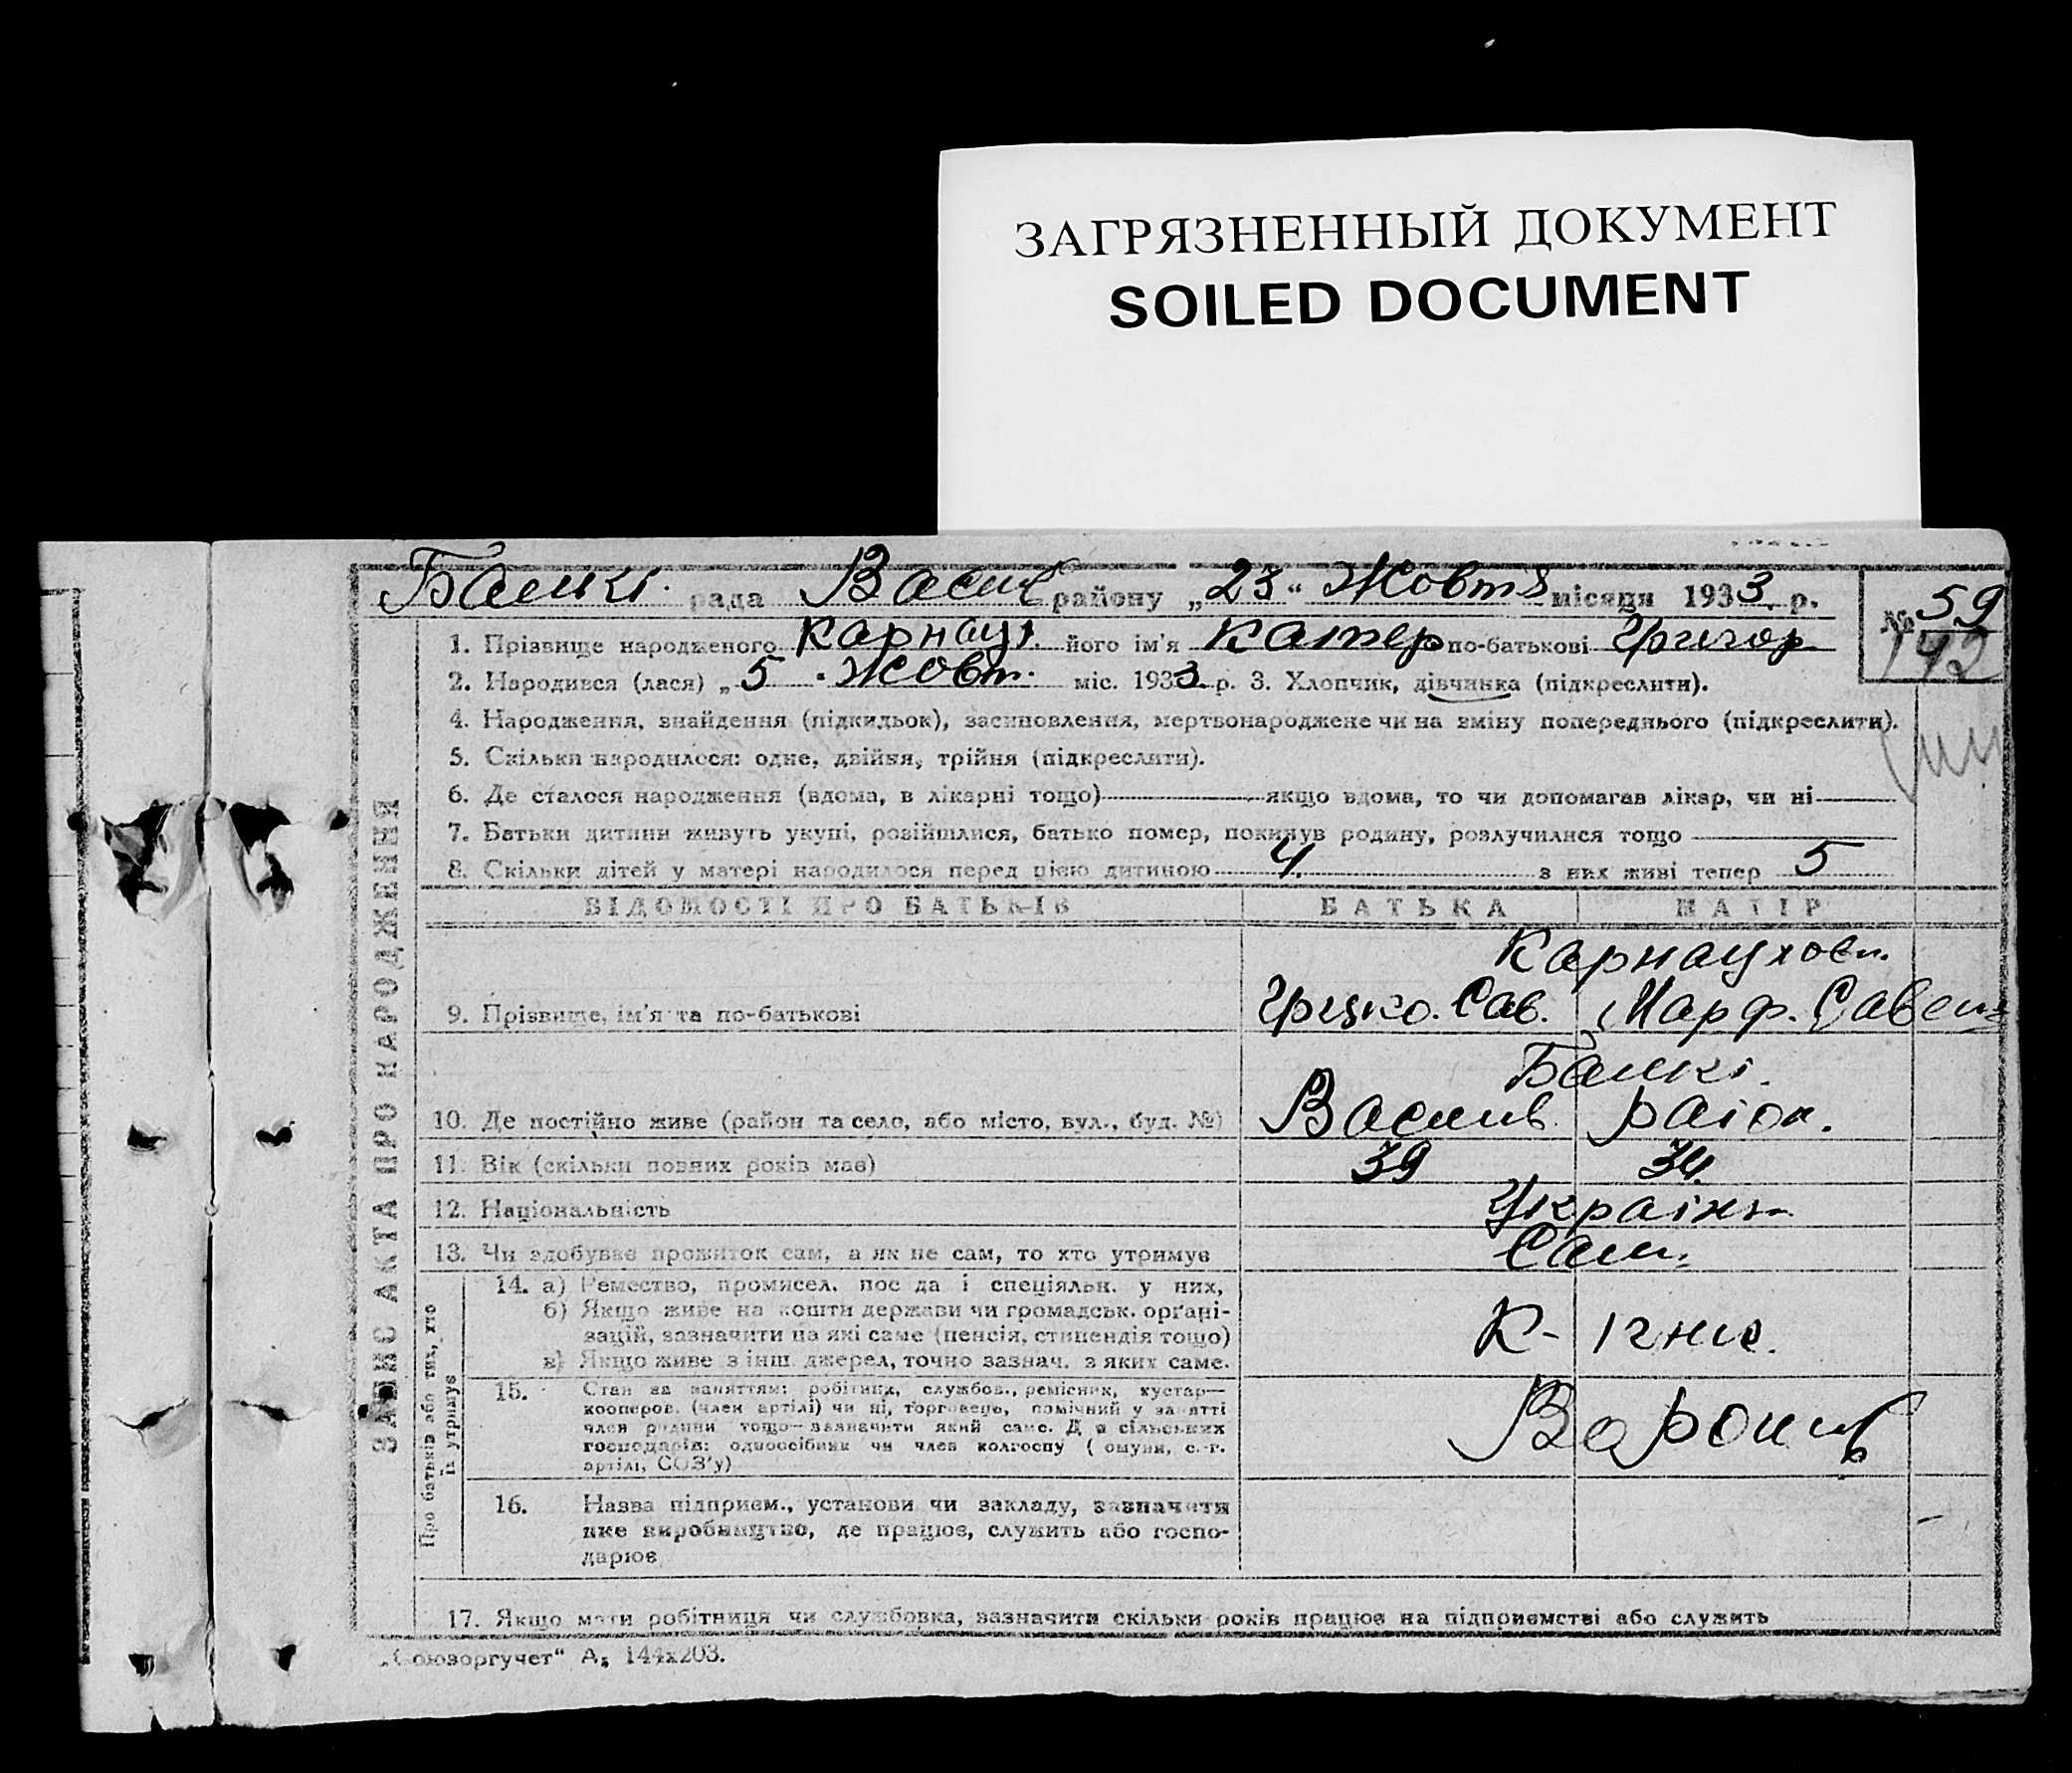 ЗАГРЯЗНЕННЫЙ ДОКУМЕНТ
SOILED DOCUMENT
Балкі. рада Васил району „23“ Жовтя місяця 1933 р.
№ 59
142
1. Прізвище народженого Карнаух. його ім'я Катер по-батькові Григор.
2. Народився (лася) „5 " Жовт. міс. 1933 р. 3. Хлопчик, дівчинка (підкреслити).
4. Народження, знайдення (підкидьок), засиновлення, мертвонароджене чи на зміну попереднього (підкреслити).
5. Скільки народилося: одне, двійня, трійня (підкреслити).
6. Де сталося народження (вдома, в лікарні тощо) якщо вдома, то чи допомагав лікар, чи ні
7. Батьки дитини живуть укупі, розійшлися, батько помер, покинув родину, розлучилися тощо
8. Скільки дітей у матері народилося перед цією дитиною 4. з них живі тепер 5
ЗАПИС АКТА ПРО НАРОДЖЕННЯ
ВІДОМОСТІ ПРО БАТЬКІВ БАТЬКА МАТІР
Карнаухови.
9. Прізвище, ім'я та по-батькові Грицко. Сав. Марф. Савел
Балкі.
10. Де постійно живе (район та село, або місто, вул., буд. №) Васил. раіон.
11. Вік (скільки повних років має) 39 34
12. Національність Україн
13. Чи здобуває прожиток сам, а як не сам, то хто утримує Сам.
Про батьків або тих, хто
їх утримує
14. а) Ремество, промисел, пос да і спеціяльн. у них,
б) Якщо живе на кошти держави чи громадськ. орґані-
зацій, зазначити на які саме (пенсія, стипендія тощо)
в) Якщо живе з інш. джерел, точно зазнач. з яких саме.
К-
15. Стан за заняттям: робітник, службов., ремісник, кустар—
кооперов. (член артілі) чи ні, торговець, помічний у занятті
член родини тощо—зазначити який саме. Для сільських
господарів: одноосібник чи член колгоспу ( омуни, с.-г.
артілі, СОЗ'у)
16. Назва підприєм., установи чи закладу, зазначити
яке виробництво, де працює, служить або госпо-
дарює
17. Якщо мати робітниця чи службовка, зазначити скільки років працює на підприємстві або служить
„Союзоргучет“ А₅ 144х203.